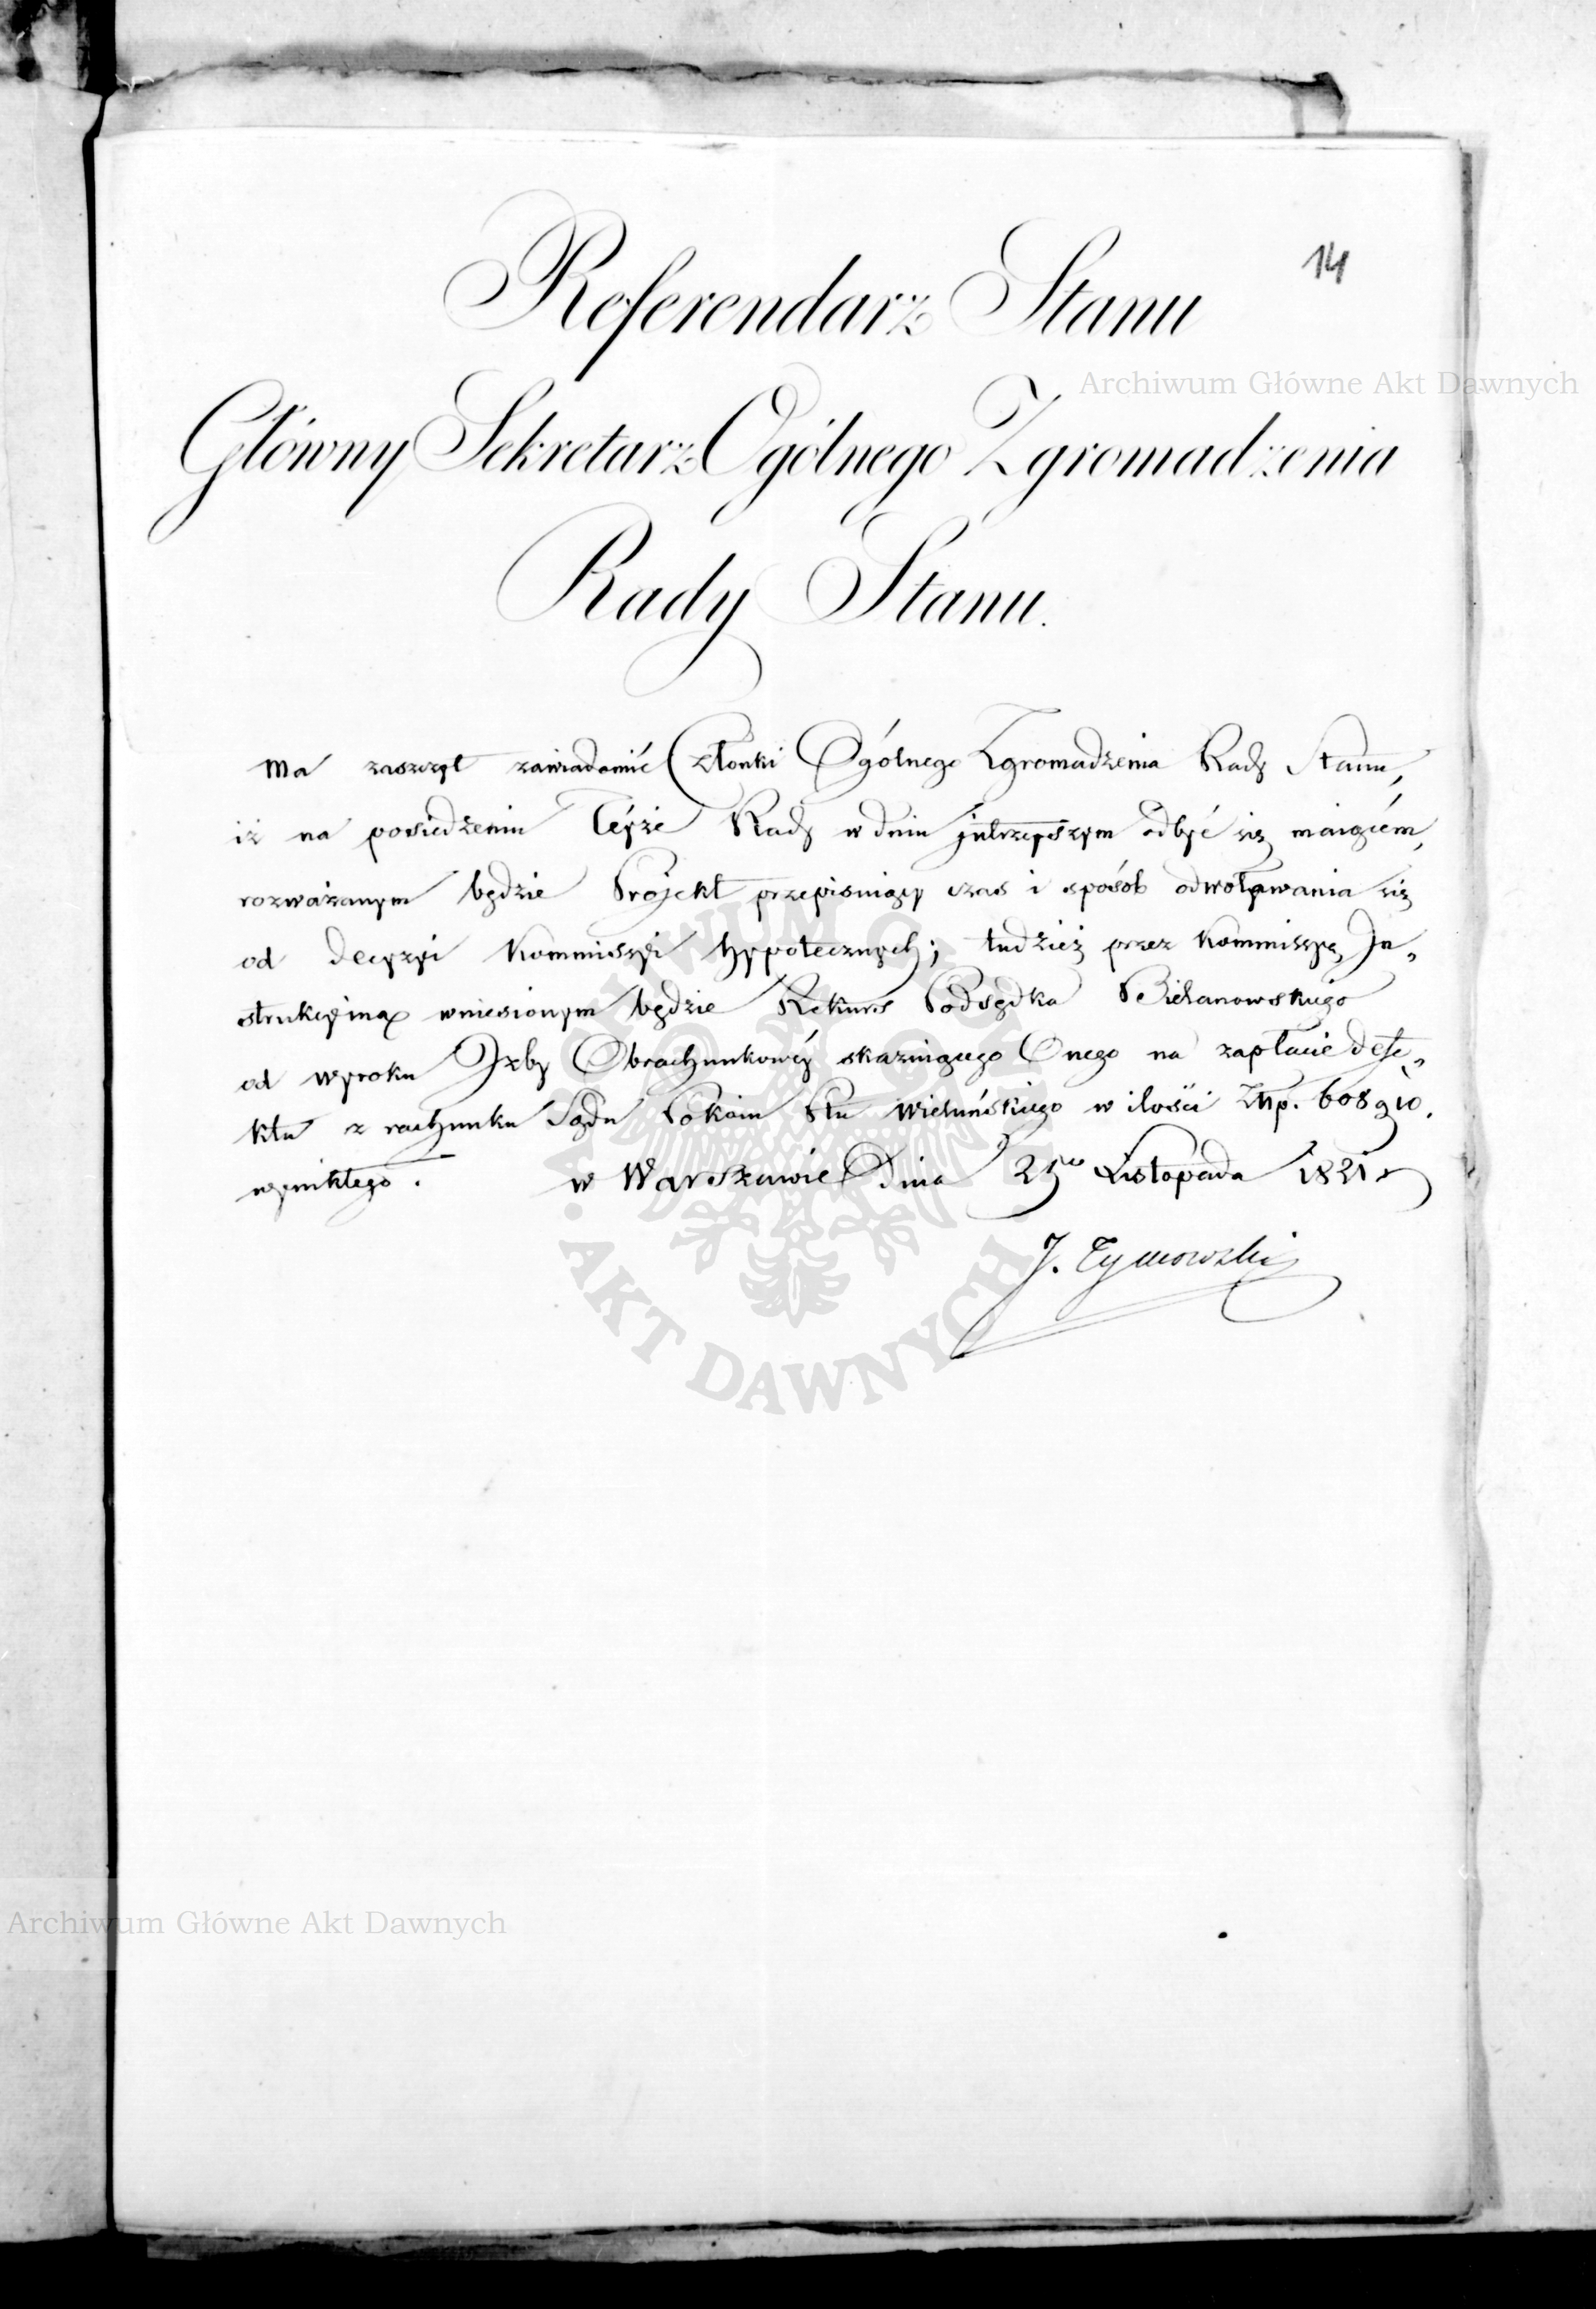 14
Referendarz Stanu
Archiwum Główne Akt Dawnych
Główny Sekretarz Ogólnego Zgromadzenia
Rady Stanu.
Ma zaszczyt zawiadomić Członki Ogólnego Zgromadzenia Rady Stanu,
iż na posiedzeniu Teyże Rady w dniu jutrzeyszym odbyć się maiącém,
rozważanym będzie Projekt przepisuiący czas i sposób odwoływania się
od decyzyi Kommissyi hypotecznych; tudzież przez Kommissyę In„
strukcyiną wniesionym będzie Rekurs Podsędka Bielanowskiego
od wyroku Izby Obrachunkowéy skazuiącego Onego na zapłacie defe„
ktu z rachunku Sądu Pokoiu Ptu Wieluńskiego w ilości Złłp. 608 g 10.
wynikłego. w Warszawie Dnia 25go Listopada 1821 r
J. Tymowski
ARCHIWUM GŁÓWNE AKT DAWNYCH
Archiwum Główne Akt Dawnych